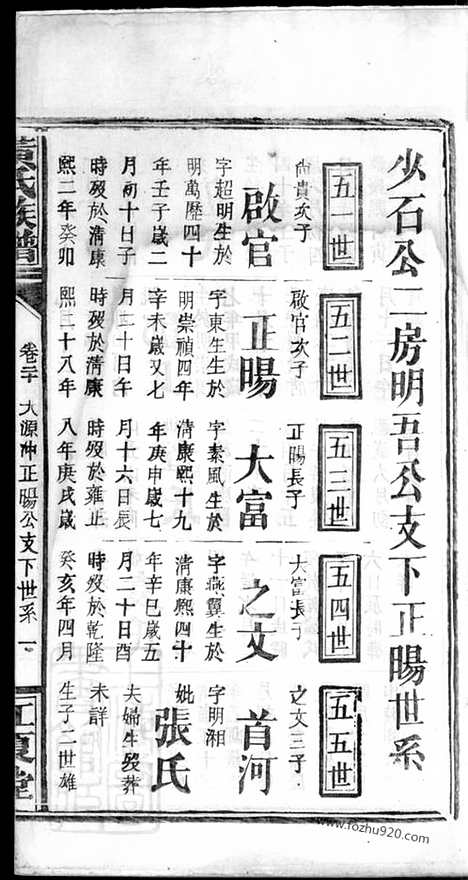 少石公二房明吾公支下正暘世系
五一世
尚貴次子
啟官
字超明生於
明萬歷四十
年壬子歲二
月初十日子
時歿於清康
熙二年癸卯
五二世
啟官次子
正暘
字東生生於
明崇禎四年
辛未歲又七
月二十日午
時歿於清康
熙三十八年
五三世
正暘長子
大富
字素風生於
清康熙十九
年庚申歲七
月十六日辰
時歿於雍正
八年庚戌歲
五四世
大富長子
之文
字燕翼生於
清康熙四十
年辛巳歲五
月二十日酉
時歿於乾隆
癸亥年四月
五五世
之文三子
首河
字明湘
妣張氏
夫婦生歿葬
未詳
生子二世雄
黃氏族譜
卷二十 大源冲正暘公支下世系 一
江夏堂
www.fozhu920.com